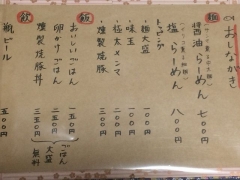 おしながき
麺
醤油らーめん 七〇〇
塩らーめん 八〇〇
トッピング
・麺大盛 一〇〇
・味玉 一〇〇
・極太メンマ 一〇〇
・燻製焼豚
飯
おいしいごはん 一五〇
卵かけごはん 二五〇
燻製焼豚丼 三五〇
ごはん大盛無料
瓶ビール 五〇〇